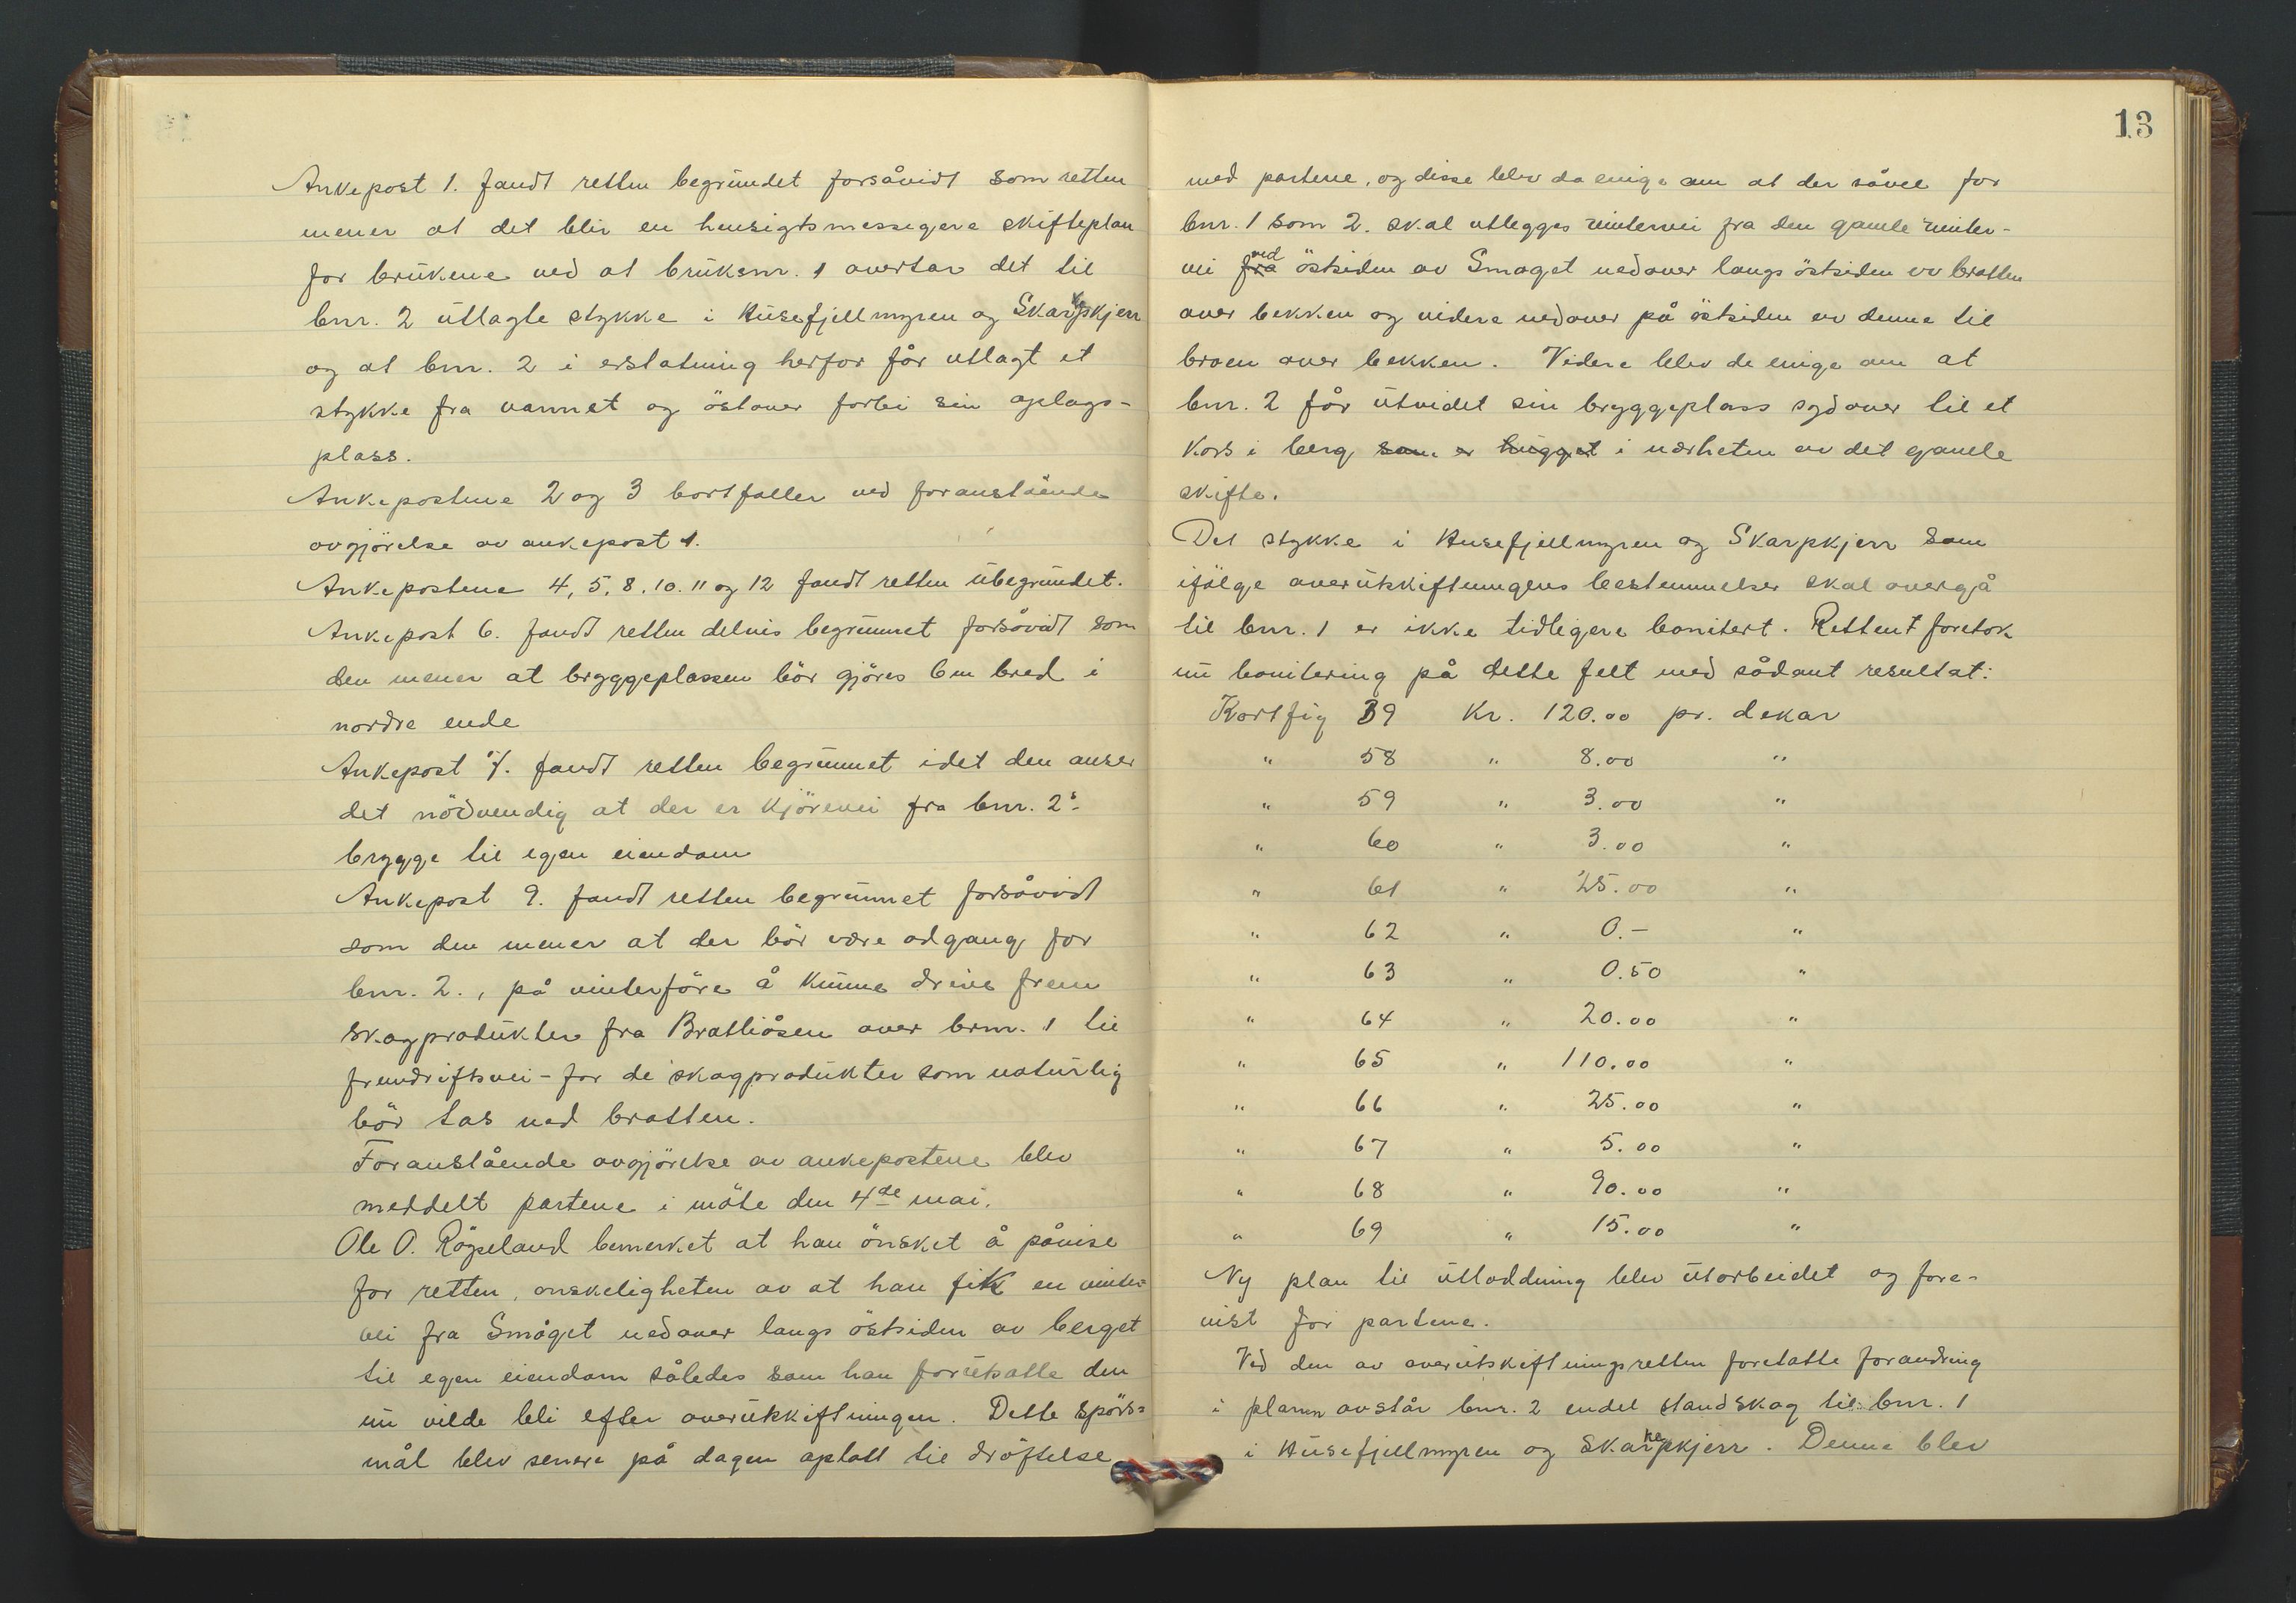 Ankepost 1. fandt retten begrundet forsåvidt som retten
mener at det blir en hensigtsmessigere skifteplan
for brukene ved at bruksnr. 1 overtar det til
bnr. 2 utlagte stykke i Husefjellmyren og Skarpekjerr
og at bnr. 2 i erstatning herfor får utlagt et
stykke fra vannet og östover forbi sin oplags-
plass.
Ankepostene 2 og 3 bortfaller ved foranstående
avgjörelse av ankepost 1.
Ankepostene 4, 5, 8, 10. 11 og 12 fandt retten ubegrundet.
Ankepost 6. fandt retten delvis begrunnet forsåvidt som
den mener at bryggeplassen bör gjöres 6m bred i
nordre ende
Ankepost 7. fandt retten begrunnet idet den anser
det nödvendig at der er kjörevei fra bnr. 2s
brygge til egen eiendom
Ankepost 9. fandt retten begrunnet forsåvidt
som den mener at der bör være adgang for
bnr. 2., på vinterföre å kunne drive frem
skogprodukter fra Bratliåsen over brnr. 1 til
fremdriftsvei - for de skogprodukter som naturlig
bör tas ned bratten.
Foranstående avgjörelse av ankepostene blev
meddelt partene i möte den 4de mai.
Ole O. Röyseland bemerket at han önsket å påvise
for retten, onskeligheten av at han fikk en vinter=
vei fra Smöget nedover langs östsiden av berget
til egen eiendom således som han forutsatte den
nu vilde bli efter overutskiftningen. Dette spörs=
mål blev senere på dagen optatt til dröftelse
13
med partene, og disse blev da enige om at der såvel for
bnr. 1 som 2. skal utlegges vintervei fra den gamle vinter-
vei fra ved östsiden av Smoget nedover langs östsiden av bratten
over bekken og videre nedover på östsiden av denne til
broen over bekken. Videre blev de enige om at
bnr. 2 får utvidet sin bryggeplass sydover til et
kors i berg som er hugget i nærheten av det gamle
skifte.
Det stykke i Husefjellmyren og Skarpkjerr som
ifölge overutskiftningens bestemmelser skal overgå
til bnr. 1 er ikke tidligere bonitert. Retten foretok
nu bonitering på dette felt med sådant resultat:
Kartfig 39 Kr. 120.00 pr. dekar
" 58 " 8.00 "
" 59 " 3.00 "
" 60 " 3.00 "
" 61 " 25.00 "
" 62 " 0.- "
" 63 " 0.50 "
" 64 " 20.00 "
" 65 " 110.00 "
" 66 " 25.00 "
" 67 " 5.00 "
" 68 " 90.00 "
" 69 " 15.00 "
Ny plan til utloddning blev utarbeidet og fore-
vist for partene.
Ved den av overutskiftningsretten foretatte forandring
i planen avstår bnr. 2 endel standskog til bnr. 1
i Husefjellmyren og Skarpekjerr. Denne blev